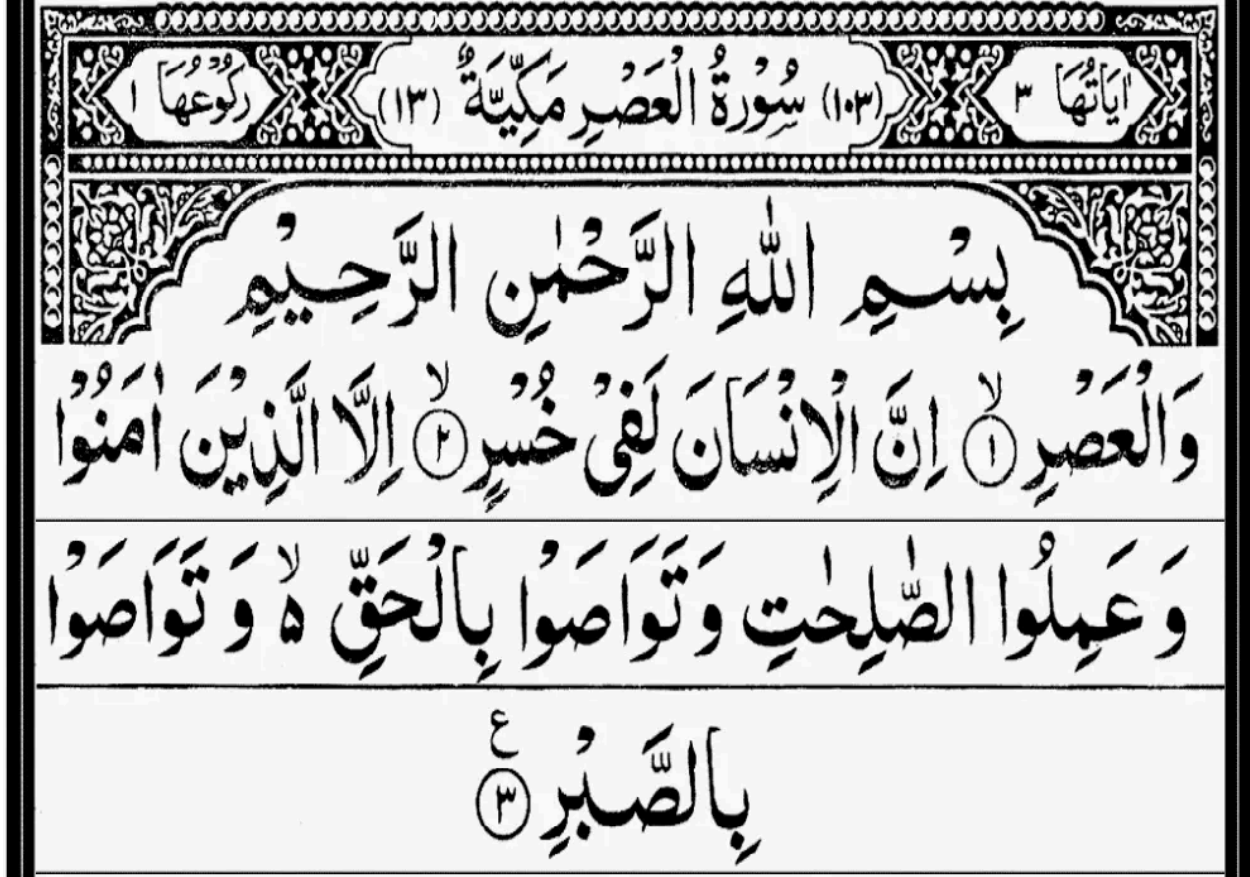 اٰیَاتُهَا ٣ (١٠٣) سُوْرَةُ الْعَصْرِ مَكِّیَّةٌ (١٣) رُكُوْعُهَا ١
بِسْمِ اللّٰهِ الرَّحْمٰنِ الرَّحِیْمِ
وَالْعَصْرِ ۙ﴿١﴾ اِنَّ الْاِنْسَانَ لَفِیْ خُسْرٍ ۙ﴿٢﴾ اِلَّا الَّذِیْنَ اٰمَنُوْا
وَ عَمِلُوا الصّٰلِحٰتِ وَ تَوَاصَوْا بِالْحَقِّ ۙ۬ وَ تَوَاصَوْا
بِالصَّبْرِ ﴿٣﴾ ع